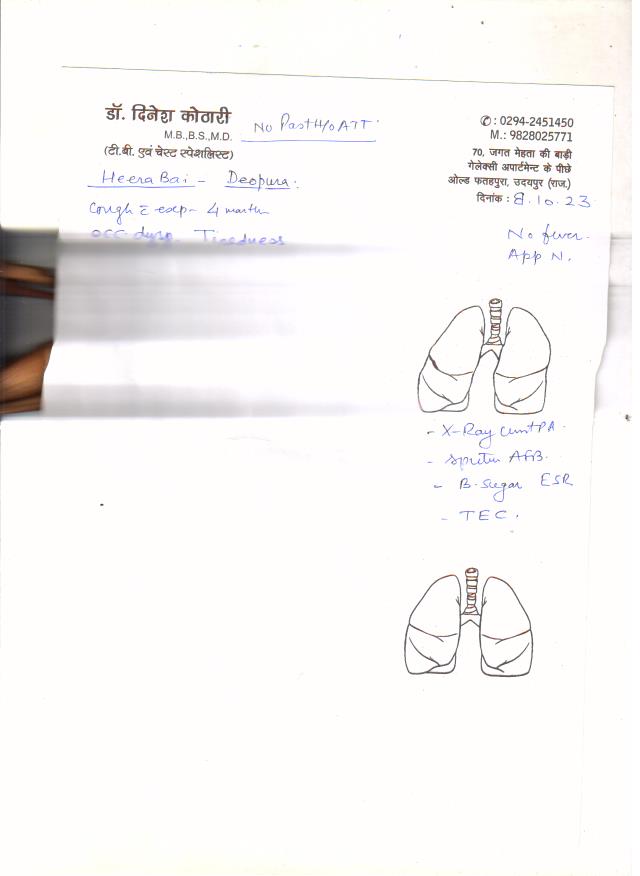 डॉ. दिनेश कोठारी
M.B.,B.S.,M.D.
(टी.बी. एवं चेस्ट स्पेशलिस्ट)
No Past H/o ATT
✆ : 0294-2451450
M.: 9828025771
70, जगत मेहता की बाड़ी
गेलेक्सी अपार्टमेन्ट के पीछे
ओल्ड फतहपुरा, उदयपुर (राज.)
दिनांक : 8.10.23
Heera Bai - Deopura.
Cough c̄ exp- 4 month
occ. dysp. Tiredness
No fever.
App N.
- X-Ray PA.
- Sputum AFB.
- B. Sugar ESR
- TEC.